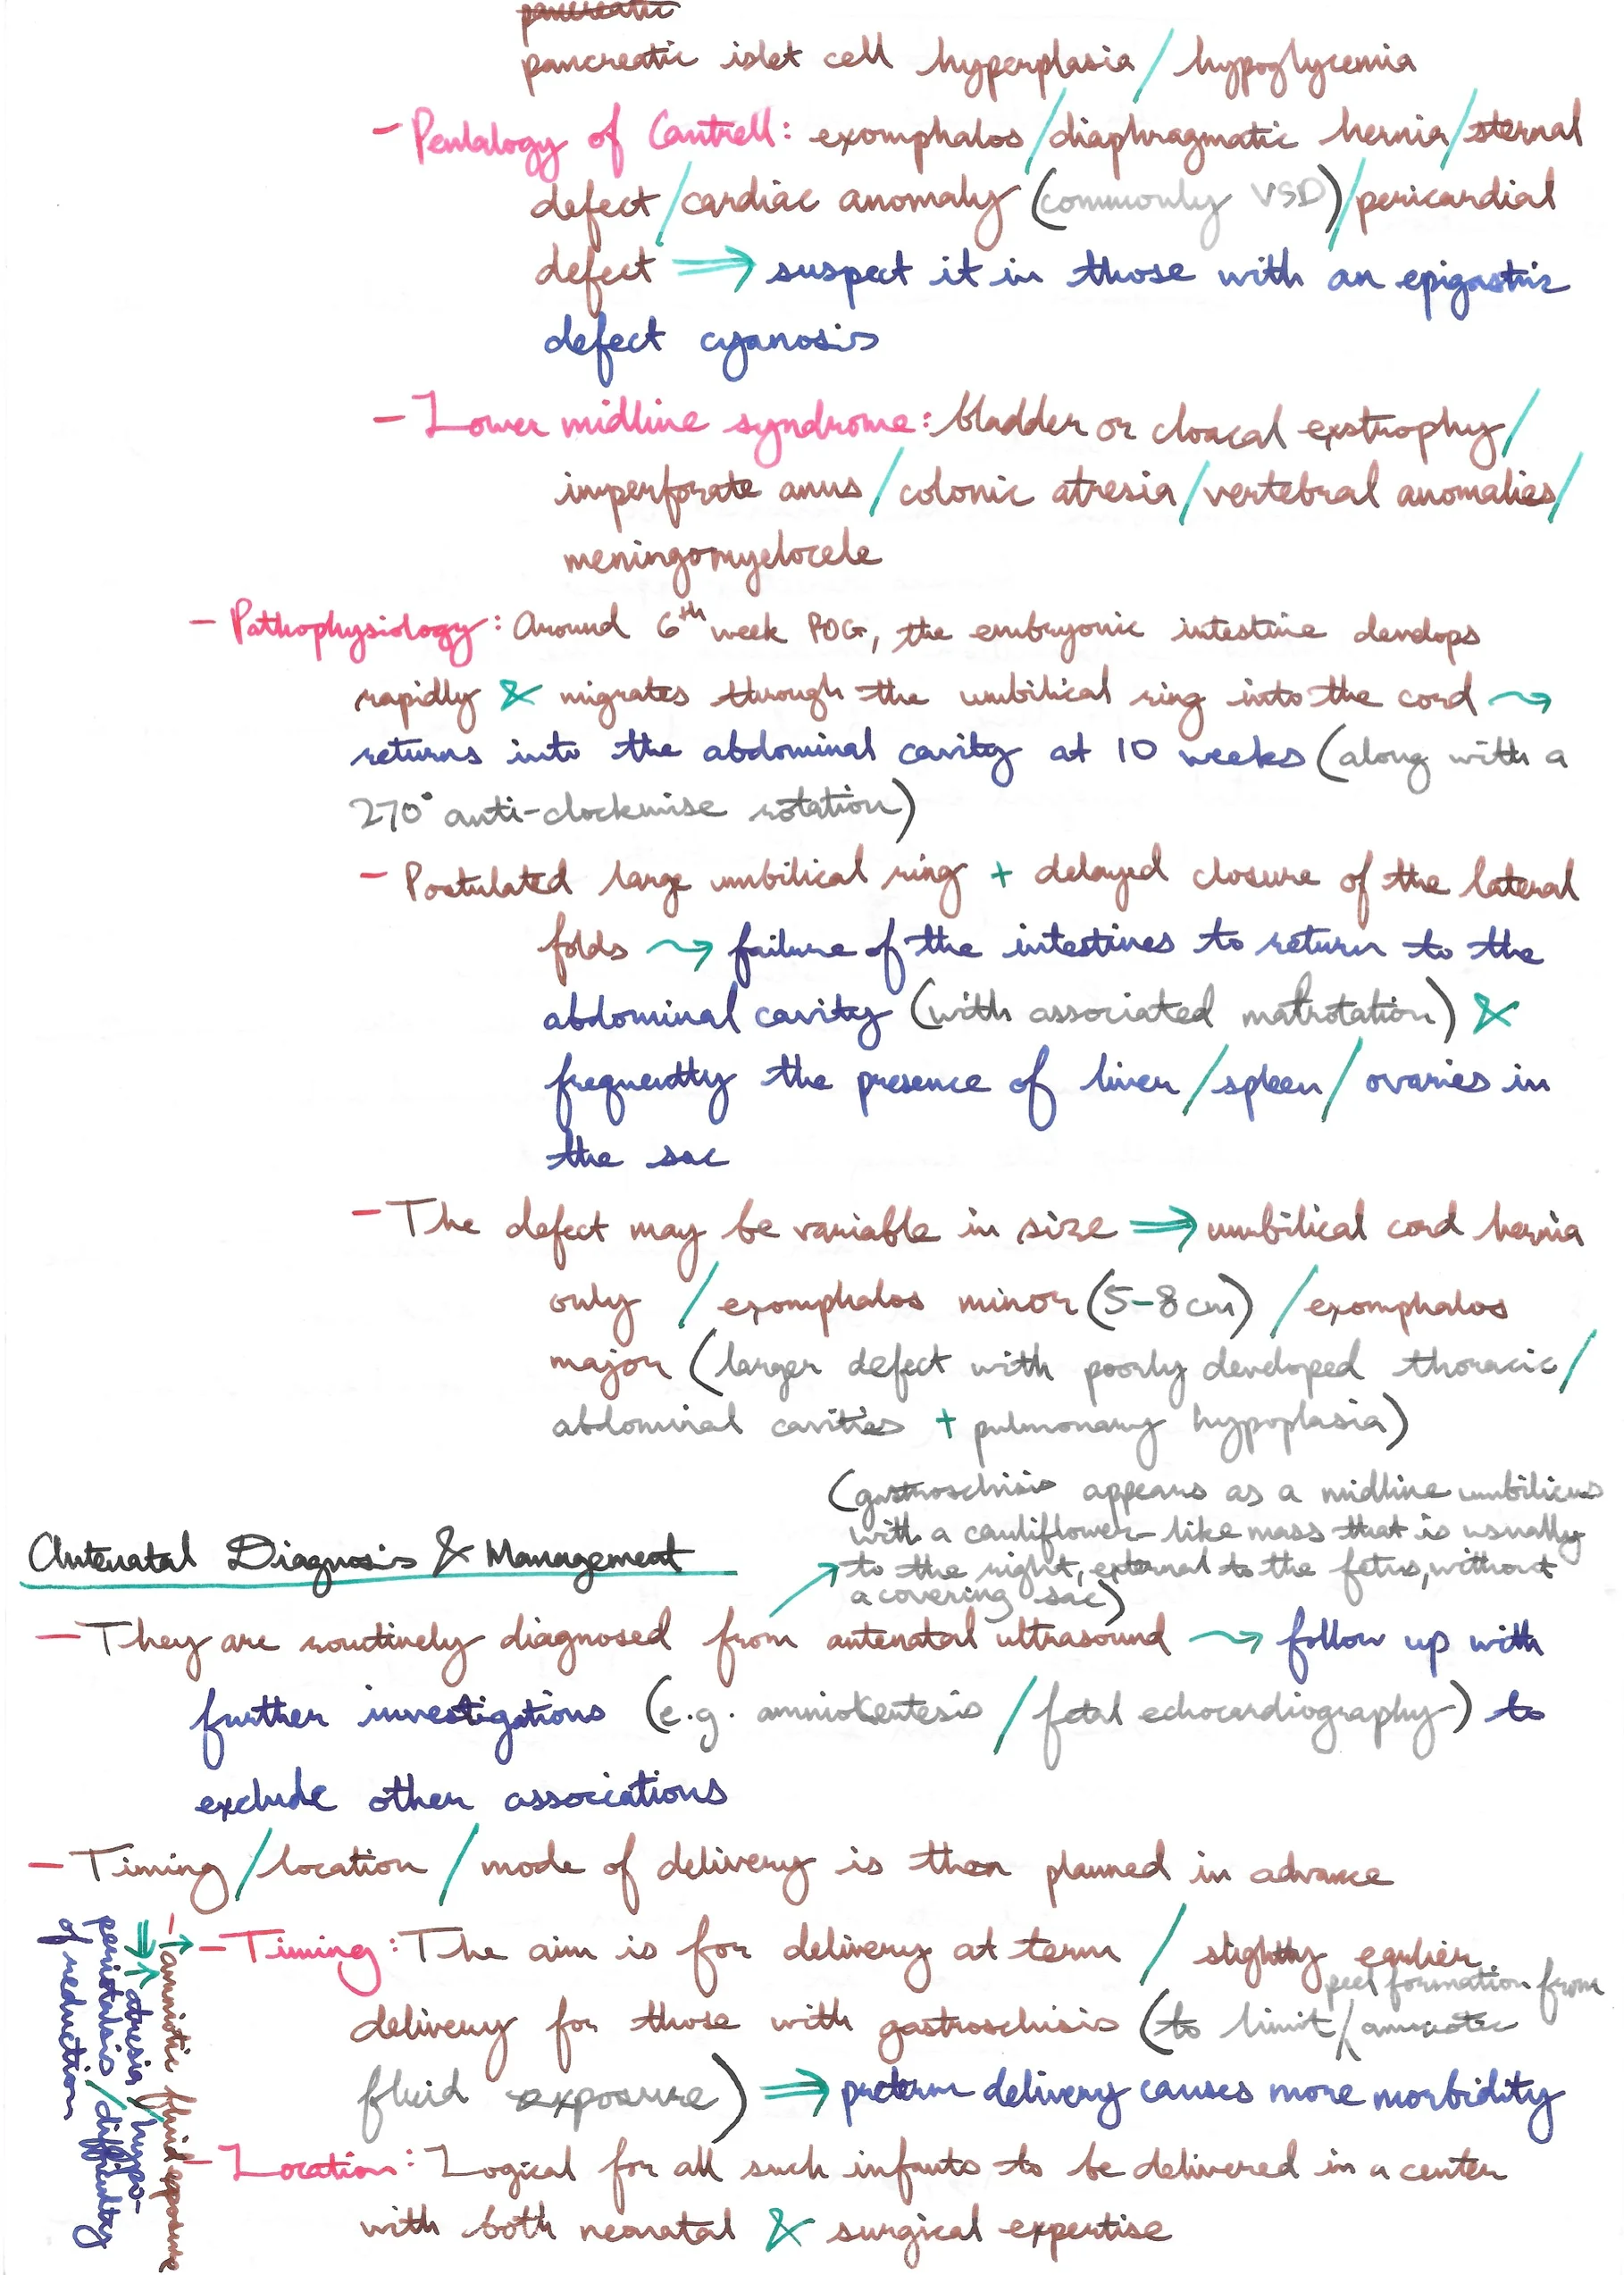 pancreatic
pancreatic islet cell hyperplasia / hypoglycemia
- Pentalogy of Cantrell: exomphalos / diaphragmatic hernia / sternal
defect / cardiac anomaly (commonly VSD) / pericardial
defect ⟹ suspect it in those with an epigastric
defect cyanosis
- Lower midline syndrome: bladder or cloacal exstrophy /
imperforate anus / colonic atresia / vertebral anomalies /
meningomyelocele
- Pathophysiology: Around 6th week POG, the embryonic intestine develops
rapidly & migrates through the umbilical ring into the cord ⇝
returns into the abdominal cavity at 10 weeks (along with a
270° anti-clockwise rotation)
- Postulated large umbilical ring + delayed closure of the lateral
folds ⇝ failure of the intestines to return to the
abdominal cavity (with associated malrotation) &
frequently the presence of liver / spleen / ovaries in
the sac
- The defect may be variable in size ⟹ umbilical cord hernia
only / exomphalos minor (5-8cm) / exomphalos
major (larger defect with poorly developed thoracic /
abdominal cavities + pulmonary hypoplasia)
(gastroschisis appears as a midline umbilicus
with a cauliflower-like mass that is usually
to the right, external to the fetus, without
a covering sac)
Antenatal Diagnosis & Management
- They are routinely diagnosed from antenatal ultrasound ⇝ follow up with
further investigations (e.g. amniocentesis / fetal echocardiography) to
exclude other associations
- Timing / location / mode of delivery is then planned in advance
- Timing: The aim is for delivery at term / slightly earlier
peel formation from
delivery for those with gastroschisis (to limit / amniotic
fluid exposure) ⟹ preterm delivery causes more morbidity
- Location: Logical for all such infants to be delivered in a center
with both neonatal & surgical expertise
- amniotic fluid exposure
⟹ atresia / hypo-
peristalsis / difficulty
of reduction